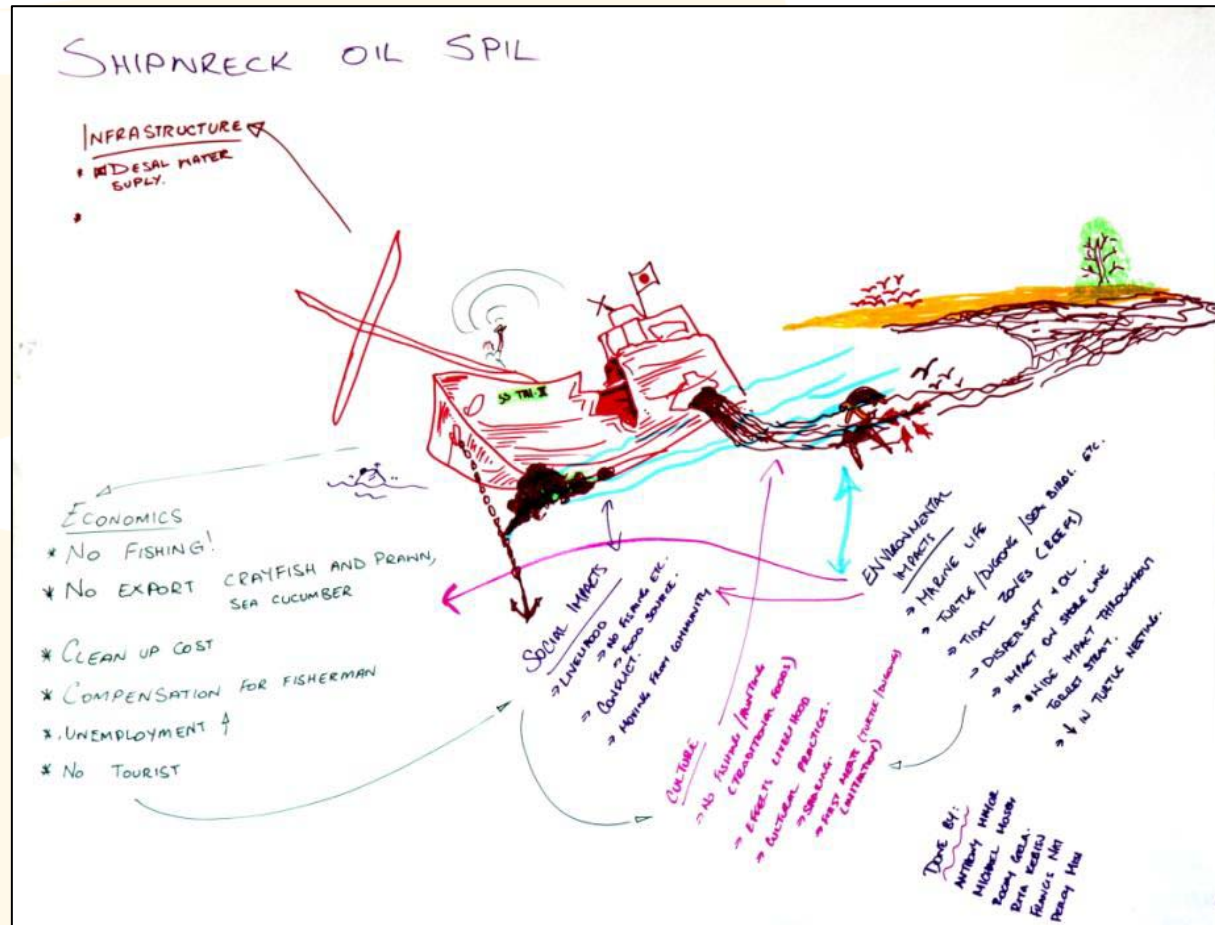 SHIPWRECK OIL SPIL
INFRASTRUCTURE
* DESAL WATER
SUPLY.
*
ECONOMICS
* NO FISHING!
* NO EXPORT CRAYFISH AND PRAWN,
SEA CUCUMBER
* CLEAN UP COST
* COMPENSATION FOR FISHERMAN
* UNEMPLOYMENT ↑
* NO TOURIST
SOCIAL IMPACTS
→ LIVELIHOOD
→ NO FISHING ETC.
→ FOOD SOURCE.
→ CONFLICT.
→ MOVING FROM COMMUNITY
CULTURE
→ NO FISHING/HUNTING
(TRADITIONAL FOODS)
→ EFFECTS LIVELIHOOD
→ CULTURAL PRACTICES.
→ SHARING.
→ FIRST MEATS (TURTLE/DUGONG)
(INITIATION)
ENVIRONMENTAL
IMPACTS
→ MARINE LIFE
→ TURTLE/DUGONG/SEA BIRDS. ETC.
→ TIDAL ZONES (REEFS)
→ DISPERSANT + OIL.
→ IMPACT ON SHORE LINE
→ WIDE IMPACT THROUGHOUT
TORRES STRAIT.
→ ↓ IN TURTLE NESTING.
DONE BY:
ANTHONY MAYOR
MICHAEL
ROCKY GELA.
RITA KEBISU
FRANCIS NAI
PERCY